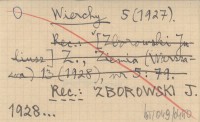 Wierchy 5 (1927).
Rec.: "[Zborowski Ju-
liusz] Z., Ziemia (Warsza-
wa) 13 (1928), nr 5: 79.
Rec.: ZBOROWSKI J.
1928...